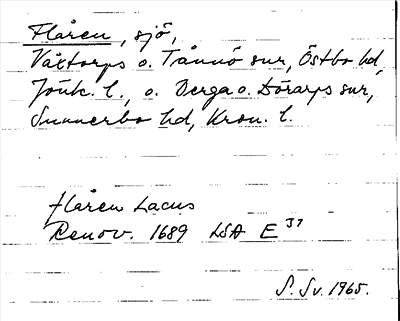 Flåren, sjö,
Våxtorps o. Tånnö snr, Östbo hd,
Jönk. l., o. Berga o. Dörarps snr,
Sunnerbo hd, Kron. l.
flåren Lacus
Renov. 1689 LSA E 37
S. Sv. 1965.